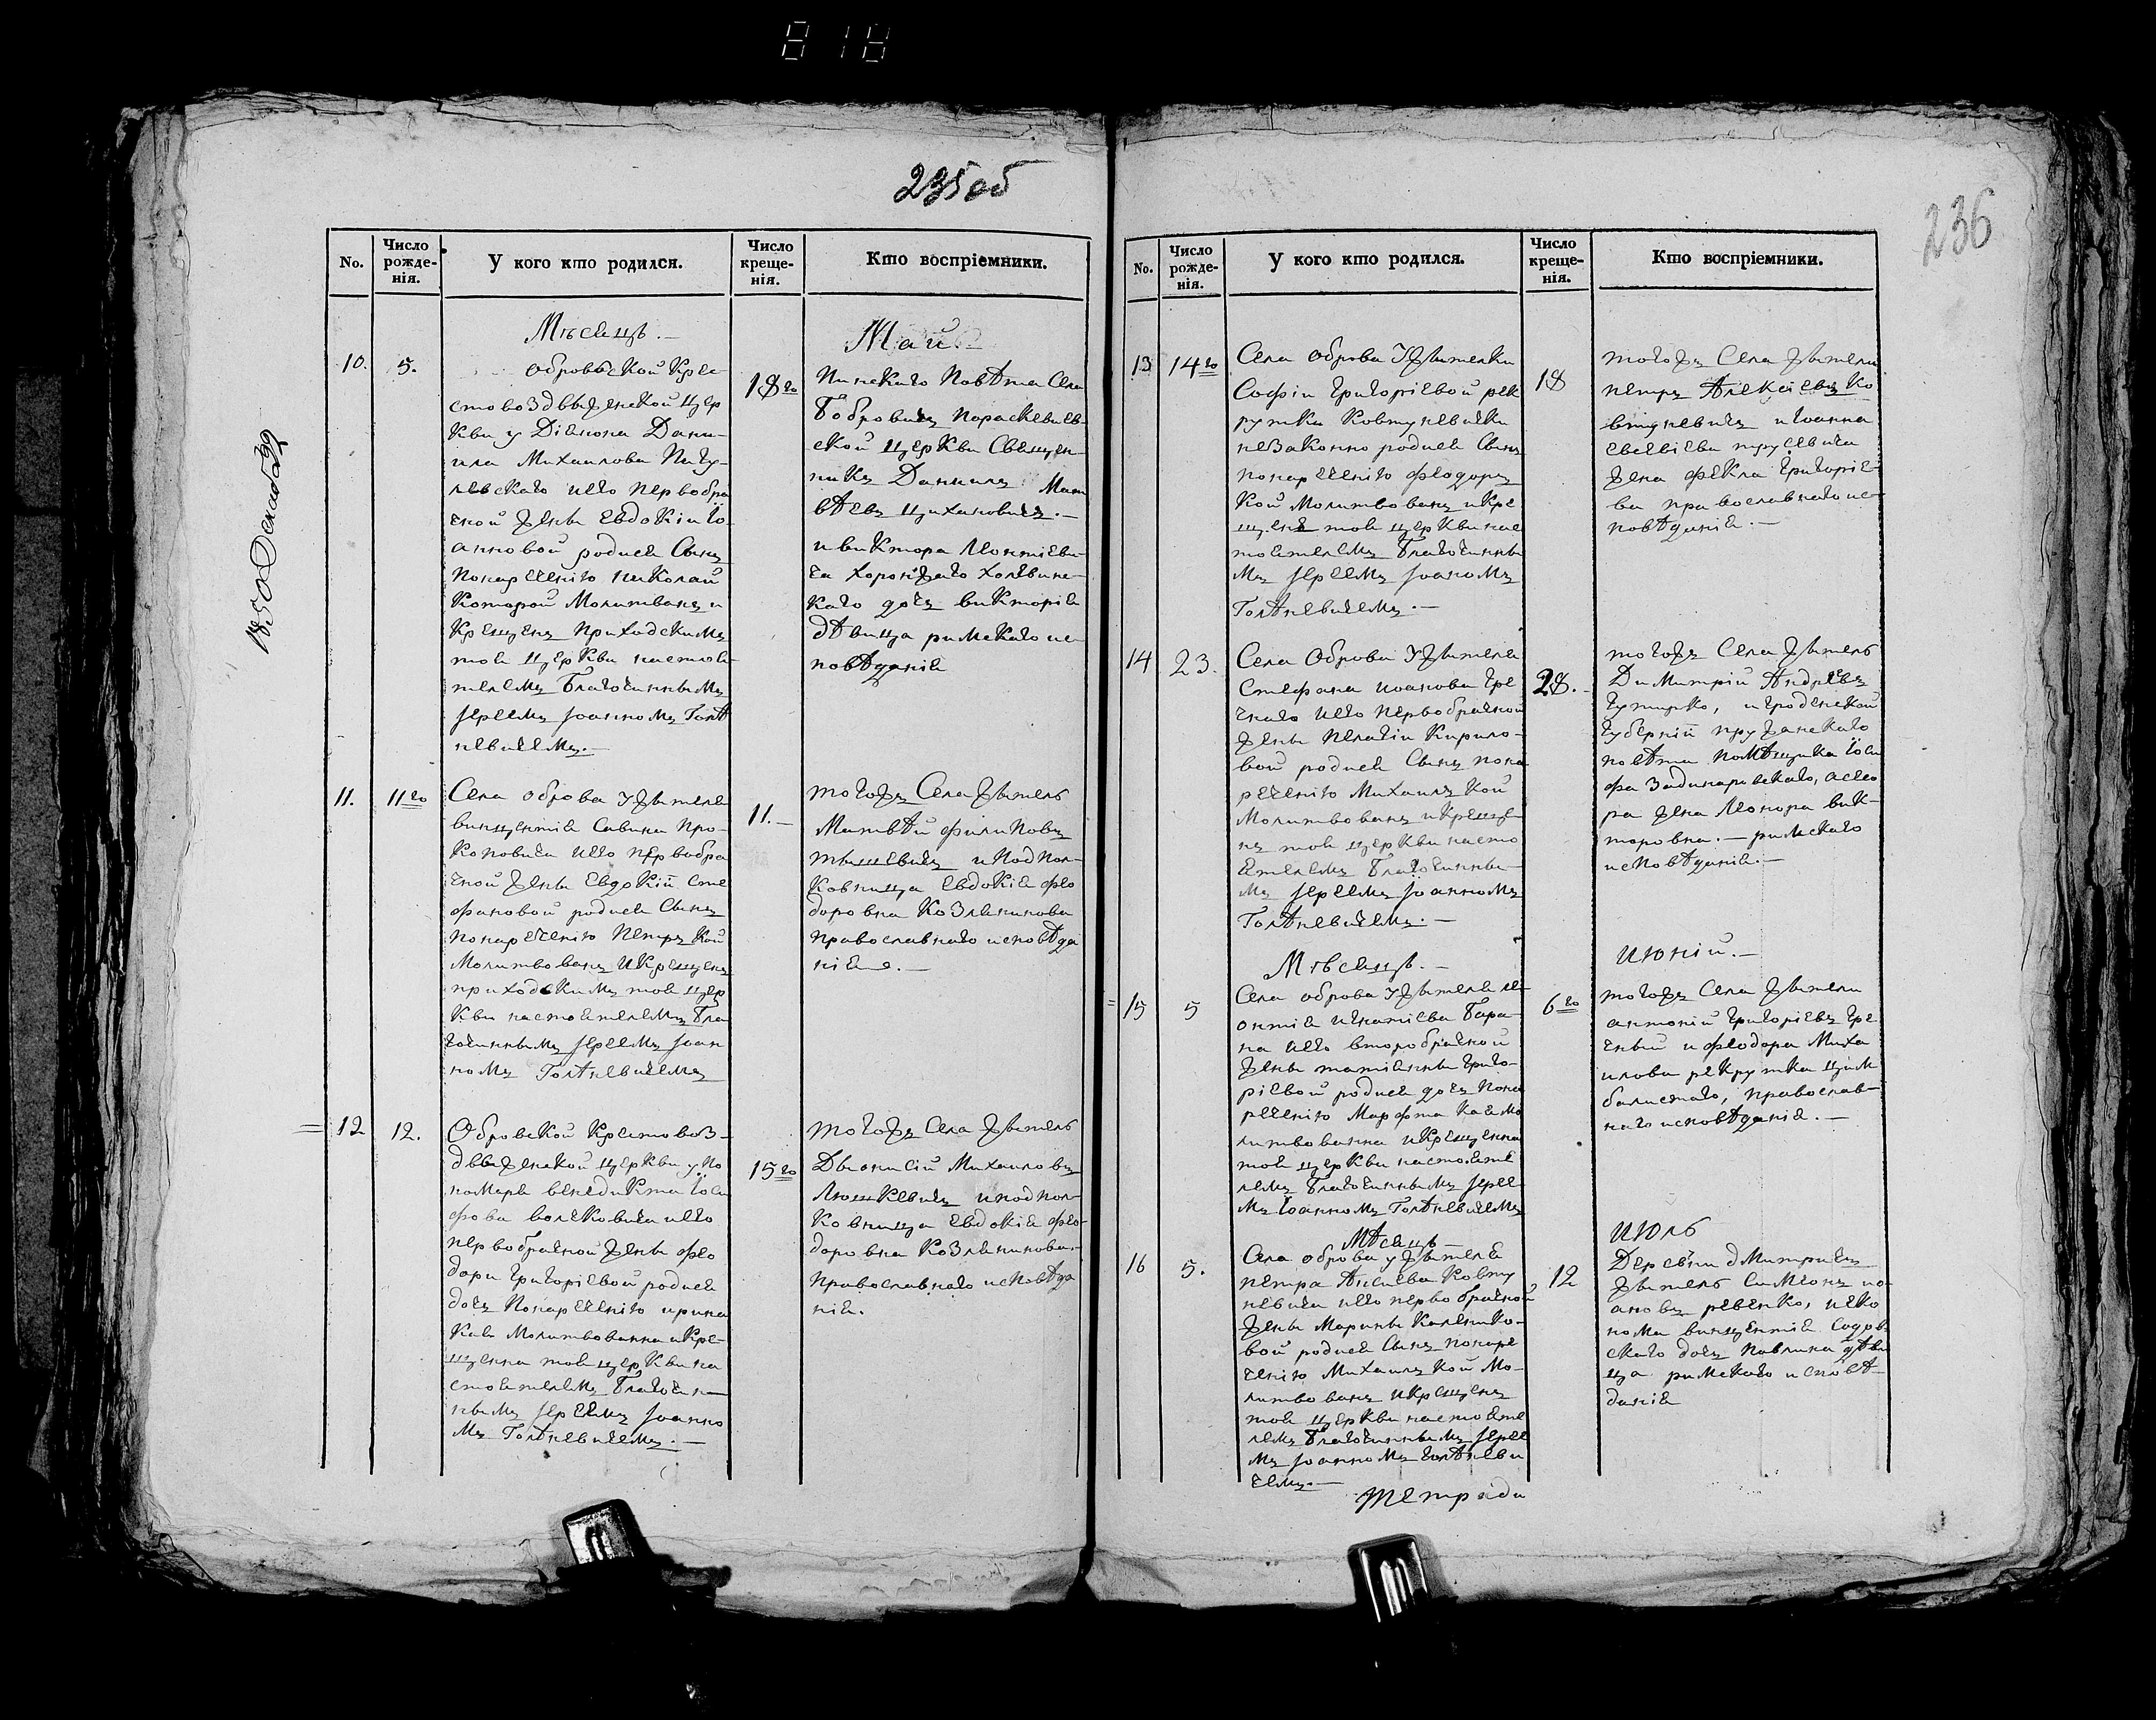 818
235 об
236
No.
Число рожде-нія.
У кого кто родился.
Число креще-нія.
Кто воспріемники.
Мѣсяцъ.
Май
10.
5.
Обровской Кре-
стовоздвыженской цер
кви у Діякона Дани-
ила Михаилова Пигу-
левскаго иего первобра
чной жены Евдокіи Іо-
анновой родися Сынъ
понареченію Николай
Которой Молитванъ и
Крещенъ Приходскимъ
тоя церкви настоя-
телемъ Благочиннымъ
Іереемъ Іоанномъ Голѣ
невичемъ.
18го
Пинскаго Повѣта Села
Бобровичъ Параскевіев-
ской церкви Священ-
никъ Даниилъ Мат
вѣевъ Цихановичъ.
и виктора Леонтіеви-
ча Хоронжаго
каго дочъ викторія
дѣвица римскаго ис-
повѣданія
11.
11го
Села Оброва У жителя
винцентія Савина Про-
коповича иего первобра
чной жены Евдокіи Сте
фановой родися Сынъ
понареченію Петръ Кой
Молитвованъ и Крещенъ
приходскимъ тоя цер
кви настоятелемъ Бла
гочиннымъ Іереемъ Іоан
номъ Голѣневичемъ
11.
тогожъ Села житель
Матвѣй филиповъ
тышевичъ и Подпол-
ковница Евдокія Фео
доровна Козляинова
православнаго исповѣда
нія.
12
12.
Обровской Крестовоз-
двыженской церкви у По
номаря венедикта Іоси
фова волчковича иего
первобрачной жены Фео
доры Григоріевой родися
дочъ Понареченію ирина
Кая Молитвованна и Кре-
щенна тоя церкви на
стоятелемъ Благочи
ннымъ Іереемъ Іоанно
мъ Голѣневичемъ.
15го
тогожъ Села житель
Дыонисій Михаиловъ
Люшкевичъ и подпол-
ковница Евдокія Фео-
доровна Козляинова
православнаго исповѣда
нія.
No.
Число рожде-нія.
У кого кто родился.
Число креще-нія.
Кто воспріемники.
13
14го
Села Оброва У жытелки
Софіи Григоріевой рек
рутки Ковтуневички
незаконно родися Сынъ
понареченію Феодоръ
Кой Молитвованъ и Кре
щенъ тоя церкви нас
тоятелемъ Благочинны
мъ Іереемъ Іоаномъ
Голѣневичемъ.
18
тогожъ Села жители
Петръ Алексіевъ Ко
втуневичъ и Іоанна
Евсевіева трусевича
жена Фекла Григоріе-
ва православнаго ис-
повѣданія.
14
23.
Села Оброва У жытеля
Стефана Иоанова Гре
чнаго иего первобрачной
жены Пелагіи Кирило-
вой родися Сынъ пона
реченію Михаилъ Кой
Молитвованъ и Креще-
нъ тоя церкви насто
ятелемъ Благочинны-
мъ Іереемъ Іоанномъ
Голѣневичемъ.
28.
тогожъ Села житель
Димитрій Андреевъ
Гутирко, и гроденской
губерніи пружанскаго
повѣта помѣщика Іоси
фа асесо
ра жена Леонора вик-
торовна. римскаго
исповѣданія.
Мѣсяцъ.
июній.
15
5
Села оброва у жителя Ле-
онтія игнатіева Бара-
на иего второбрачной
жены татіянны Григо-
ріевой родися дочъ пона
реченію Марфта кая мо
литвованна и Крещенна
тоя церкви настояте
лемъ Благочиннымъ Іерее
мъ Іоанномъ Голѣневичемъ
6го
тогожъ Села жители
антоній Григоріевъ Гре
чный и феодора Миха
илова рекрутка цим
балистаго, православ-
наго исповѣданія.
Мѣсяцъ
июль
16
5.
Села оброва у жителя
Петра Ковту
невича иего первобрачной
жены Марины Каленико-
вой родися Сынъ понаре
ченію Михаилъ кой мо-
литвованъ и крещенъ
тоя церкви настояте
лемъ Благочиннымъ Іерее
мъ Іоанномъ Голѣневи
чемъ.
12
Деревни дмитричъ
житель Симеонъ ио-
ановъ ревенко, и еко
нома винцентія
скаго дочъ Павлина дѣви
ца римскаго исповѣ-
данія
тетради